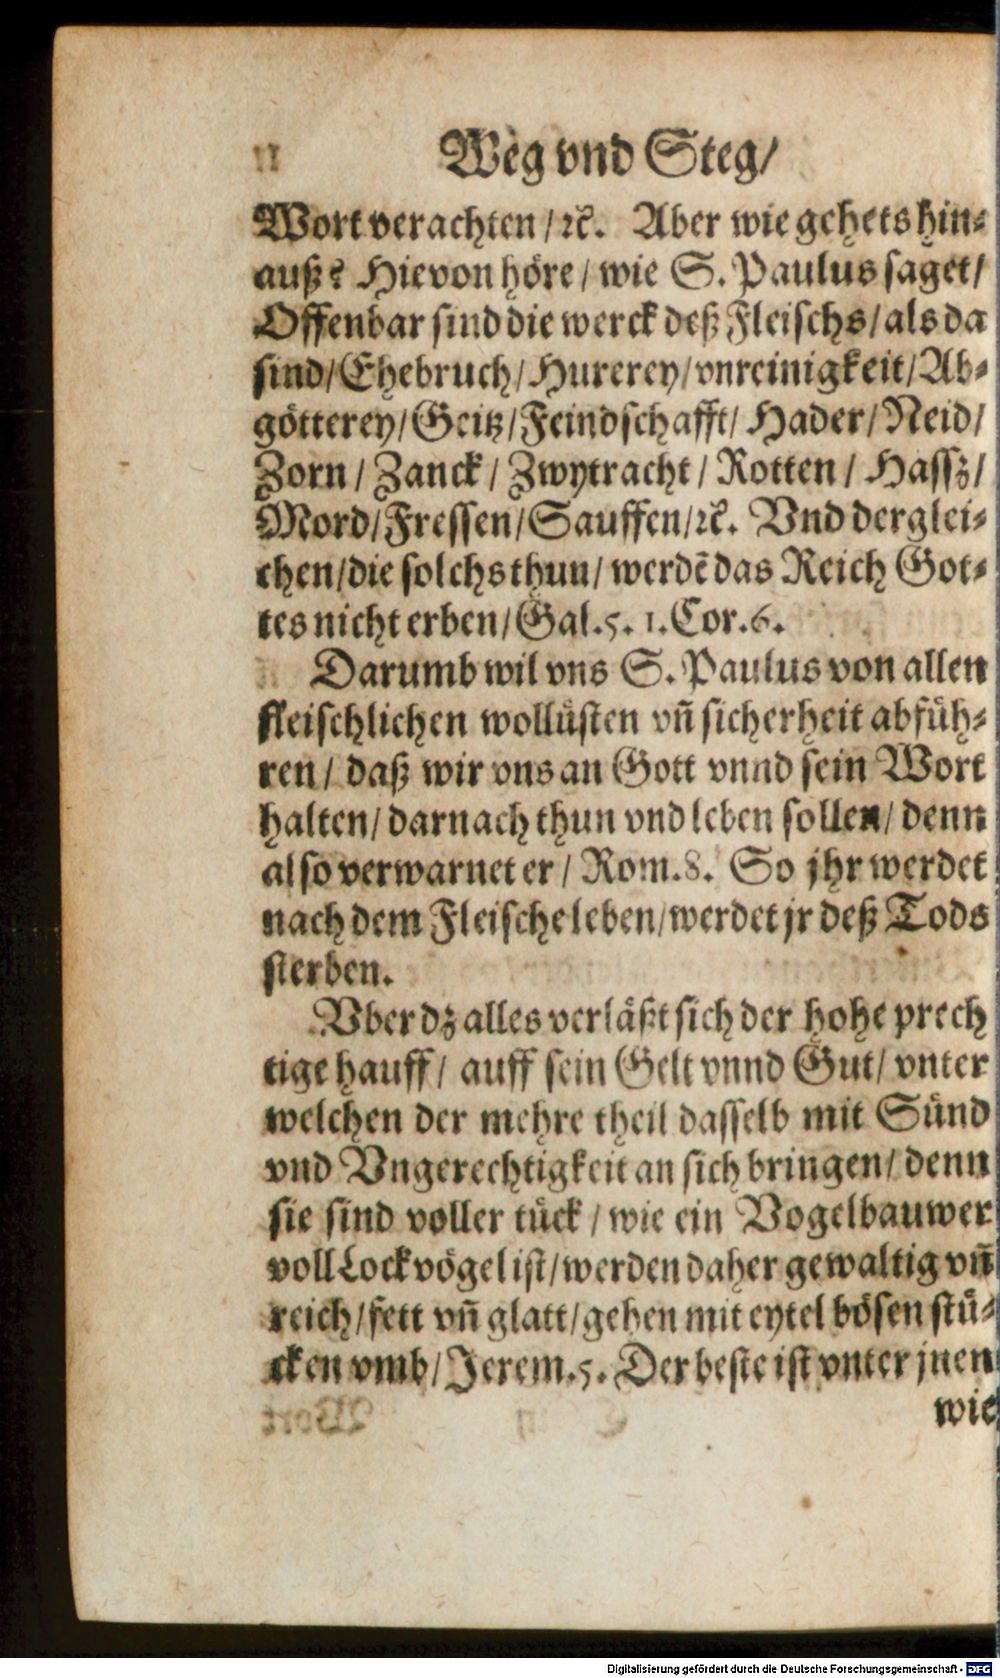 Weg vnd Steg/
Wort verachten/ꝛc. Aber wie gehets hin-
auß? Hievon höre/ wie S. Paulus saget/
Offenbar sind die werck deß Fleischs/als da
sind/Ehebruch/Hurerey/vnreinigkeit/Ab-
götterey/Geitz/Feindschafft/ Hader/Neid/
Zorn/ Zanck/ Zwytracht/ Rotten/ Hassz/
Mord/Fressen/Sauffen/ꝛc. Vnd derglei-
chen/die solchs thun/ werdē das Reich Got-
tes nicht erben/Gal.5. 1.Cor.6.
Darumb wil vns S. Paulus von allen
fleischlichen wollüsten vñ sicherheit abfüh-
ren/ daß wir vns an Gott vnnd sein Wort
halten/ darnach thun vnd leben sollen/ denn
also verwarnet er/ Rom.8. So jhr werdet
nach dem Fleische leben/werdet jr deß Tods
sterben.
Vber dz alles verläßt sich der hohe prech
tige hauff/ auff sein Gelt vnnd Gut/ vnter
welchen der mehre theil dasselb mit Sünd
vnd Vngerechtigkeit an sich bringen/ denn
sie sind voller tück/ wie ein Vogelbauwer
voll Lockvögel ist/werden daher gewaltig vñ
reich/fett vñ glatt/gehen mit eytel bösen stü-
cken vmb/Jerem.5. Der beste ist vnter jnen
wie
Digitalisierung gefördert durch die Deutsche Forschungsgemeinschaft - DFG